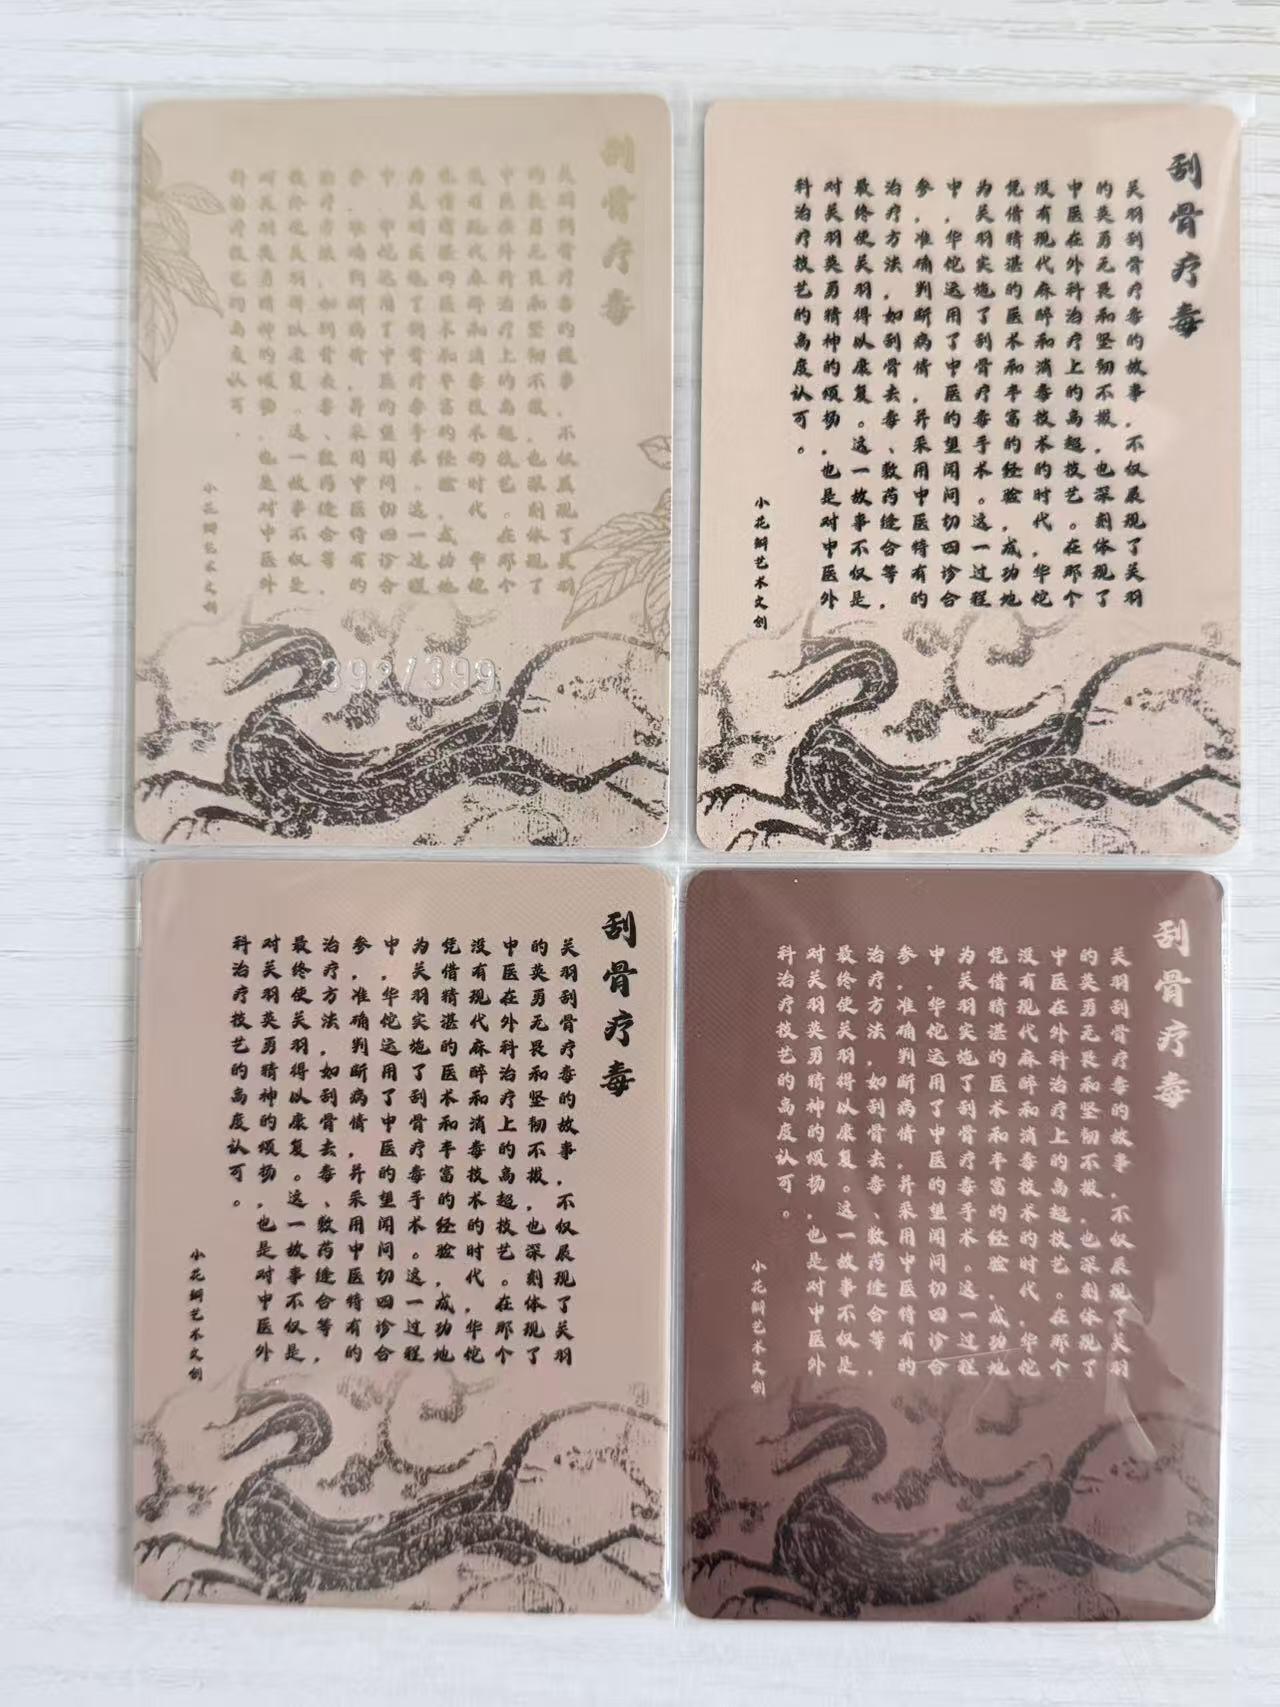 刮骨疗毒
关羽刮骨疗毒的故事，不仅展现了关羽
的英勇无畏和坚韧不拔，也深刻体现了
中医在外科治疗上的高超技艺。在那个
没有现代麻醉和消毒技术的时代，华佗
凭借精湛的医术和丰富的经验，成功地
为关羽实施了刮骨疗毒手术。这一过程
中，华佗运用了中医的望闻问切四诊合
参，准确判断病情，并采用中医特有的
治疗方法，如刮骨去毒、敷药缝合等，
最终使关羽得以康复。这一故事不仅是
对关羽英勇精神的颂扬，也是对中医外
科治疗技艺的高度认可。
小花瓣艺术文创
392/399
刮骨疗毒
关羽刮骨疗毒的故事，不仅展现了关羽
的英勇无畏和坚韧不拔，也深刻体现了
中医在外科治疗上的高超技艺。在那个
没有现代麻醉和消毒技术的时代，华佗
凭借精湛的医术和丰富的经验，成功地
为关羽实施了刮骨疗毒手术。这一过程
中，华佗运用了中医的望闻问切四诊合
参，准确判断病情，并采用中医特有的
治疗方法，如刮骨去毒、敷药缝合等，
最终使关羽得以康复。这一故事不仅是
对关羽英勇精神的颂扬，也是对中医外
科治疗技艺的高度认可。
小花瓣艺术文创
刮骨疗毒
关羽刮骨疗毒的故事，不仅展现了关羽
的英勇无畏和坚韧不拔，也深刻体现了
中医在外科治疗上的高超技艺。在那个
没有现代麻醉和消毒技术的时代，华佗
凭借精湛的医术和丰富的经验，成功地
为关羽实施了刮骨疗毒手术。这一过程
中，华佗运用了中医的望闻问切四诊合
参，准确判断病情，并采用中医特有的
治疗方法，如刮骨去毒、敷药缝合等，
最终使关羽得以康复。这一故事不仅是
对关羽英勇精神的颂扬，也是对中医外
科治疗技艺的高度认可。
小花瓣艺术文创
刮骨疗毒
关羽刮骨疗毒的故事，不仅展现了关羽
的英勇无畏和坚韧不拔，也深刻体现了
中医在外科治疗上的高超技艺。在那个
没有现代麻醉和消毒技术的时代，华佗
凭借精湛的医术和丰富的经验，成功地
为关羽实施了刮骨疗毒手术。这一过程
中，华佗运用了中医的望闻问切四诊合
参，准确判断病情，并采用中医特有的
治疗方法，如刮骨去毒、敷药缝合等，
最终使关羽得以康复。这一故事不仅是
对关羽英勇精神的颂扬，也是对中医外
科治疗技艺的高度认可。
小花瓣艺术文创